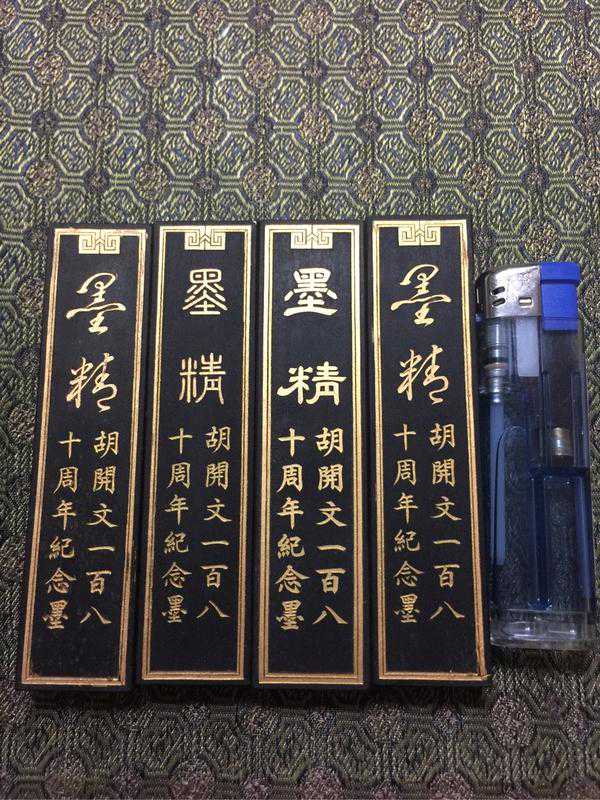 墨精
胡開文一百八
十周年紀念墨
墨精
胡開文一百八
十周年紀念墨
墨精
胡開文一百八
十周年紀念墨
墨精
胡開文一百八
十周年紀念墨